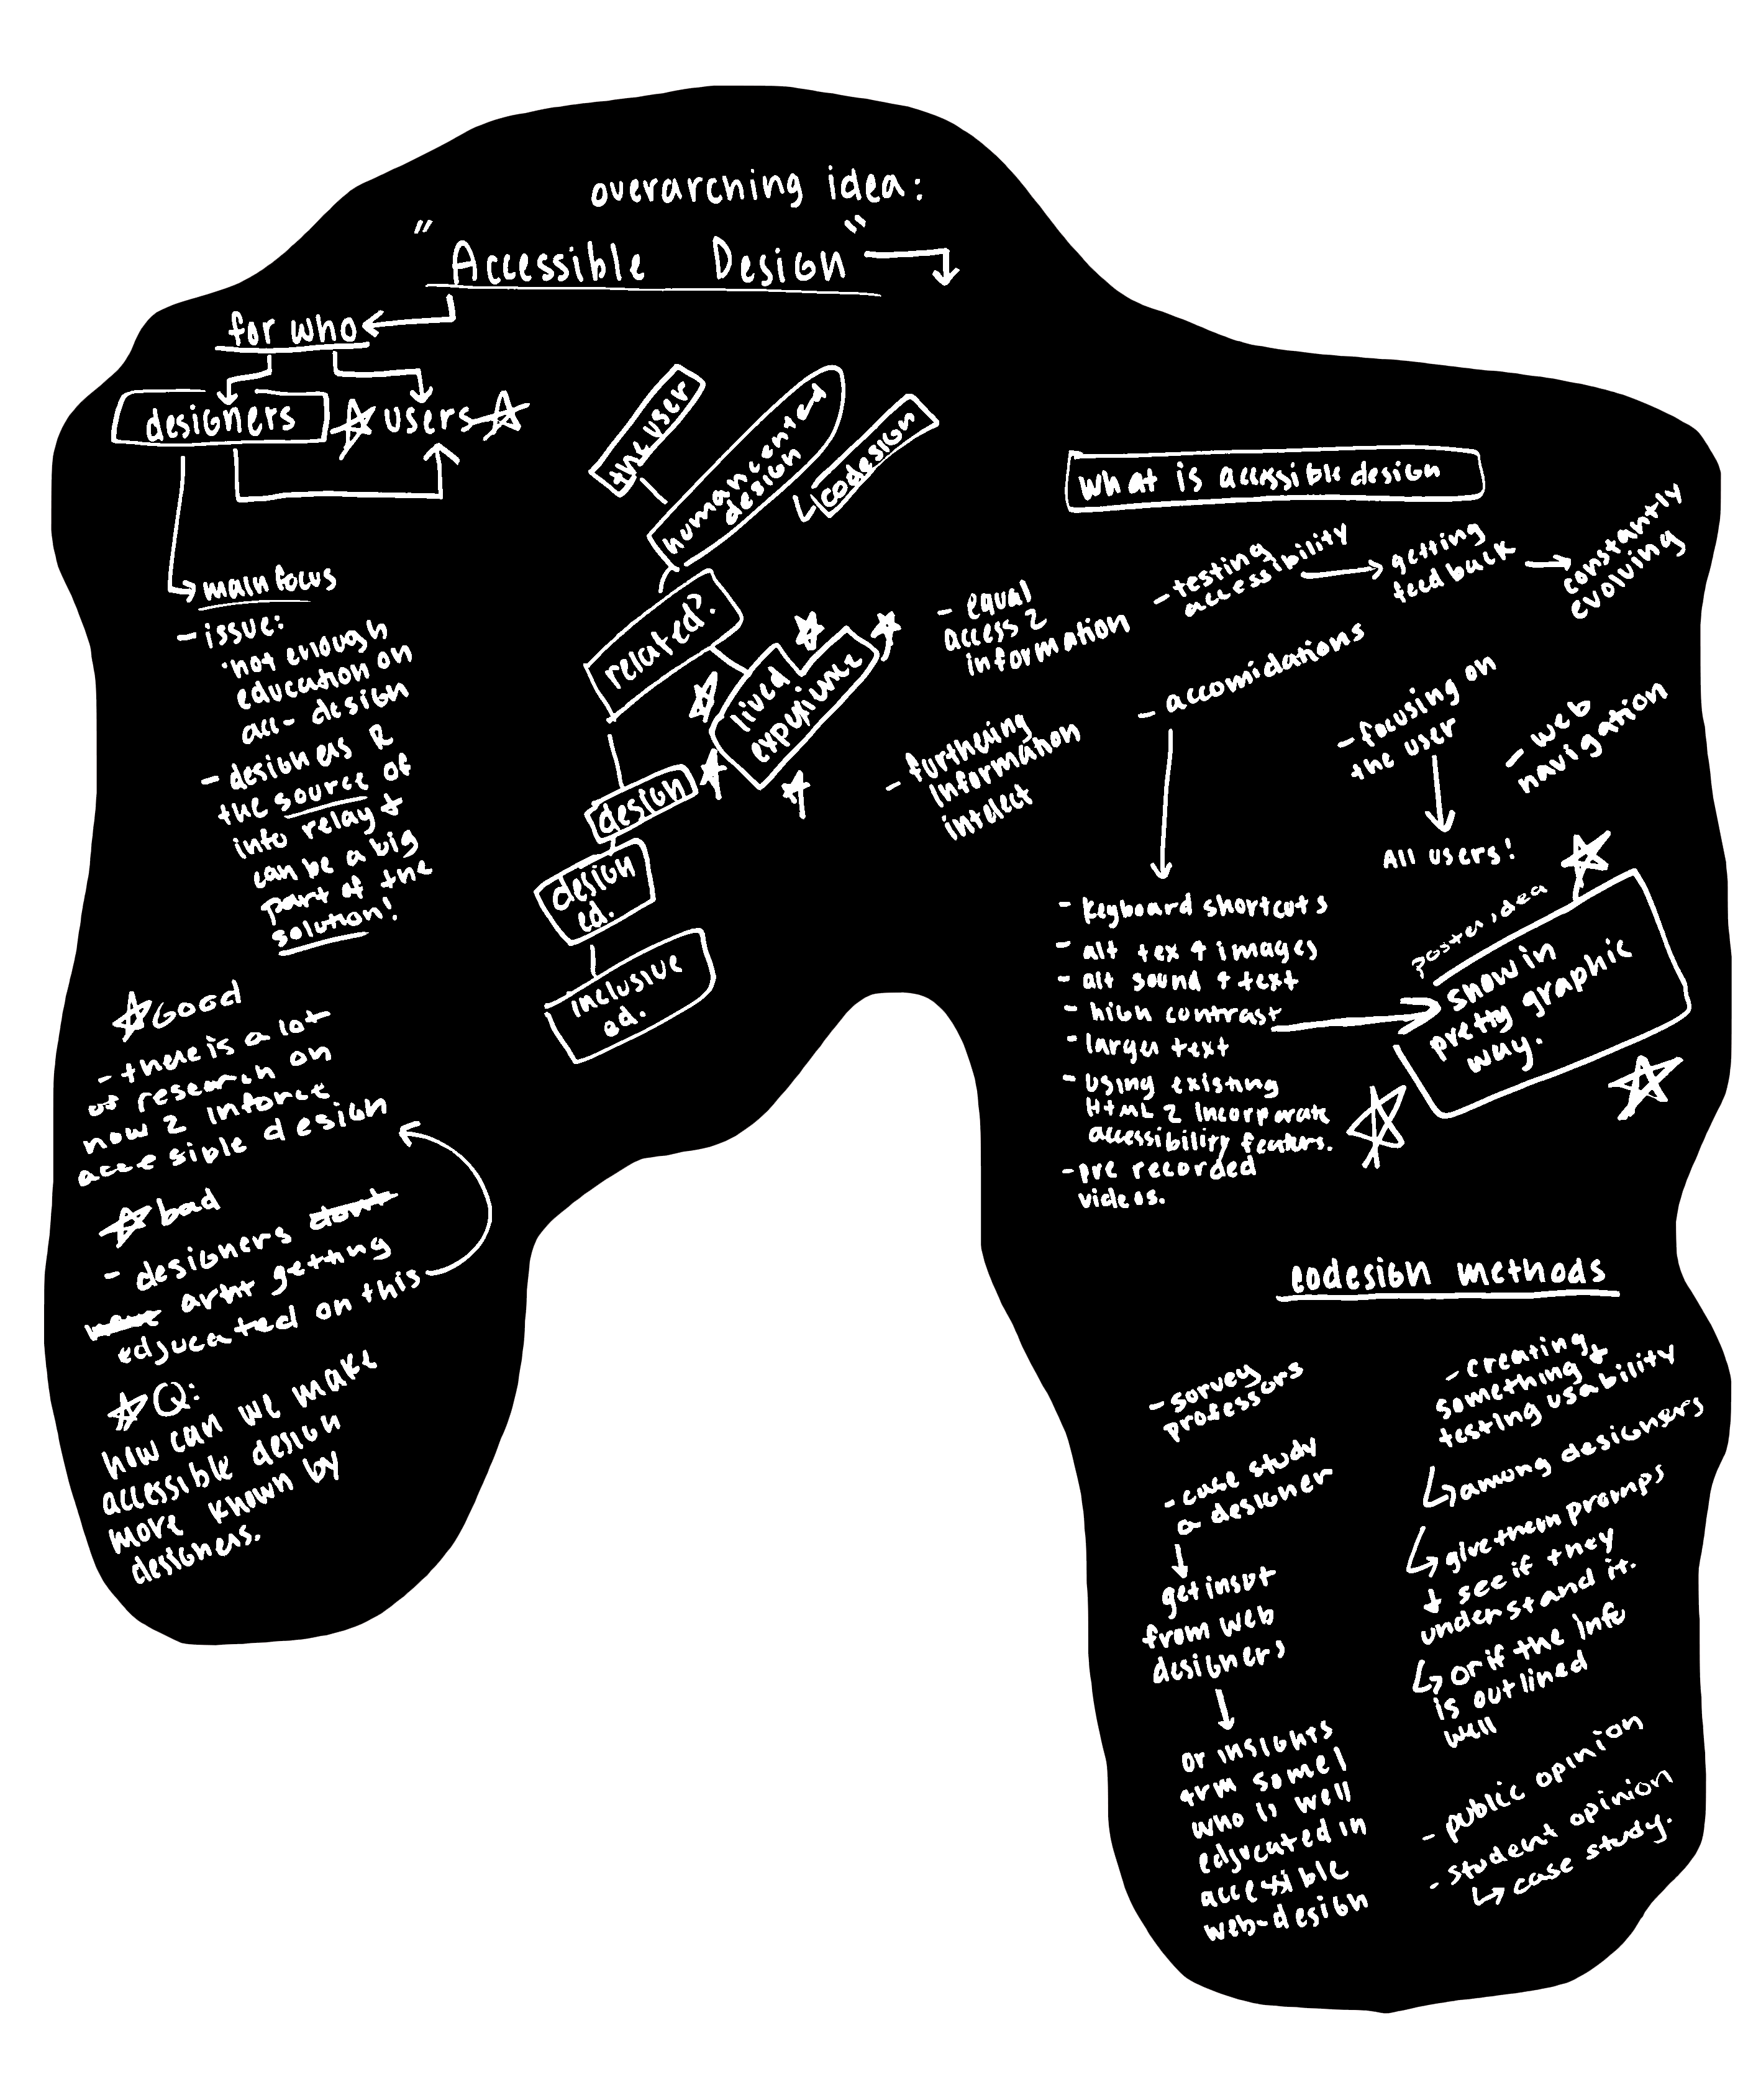 overarching idea:
"Accessible Design"
for who
designers
users
main focus
- issue:
·not enough
education on
acc- design
- designers R
the source of
info relay &
can be a big
part of the
solution!
Good
- there is a lot
of research on
how 2 inforce
accesible design
bad
- designers dont
arnt getting
edjucated on this
Q:
how can we make
accessible design
more known by
designers.
the user
humancented
design
codesign
related?
lived
experience
design
design
ed.
inclusive
ed.
what is accessible design
- equal
access 2
information
- testing
accessibility
getting
feedback
constantly
evolving
- furthering
information
intelect
- accomidations
- focusing on
the user
All users!
- web
navigation
- keyboard shortcuts
- alt tex 4 images
- alt sound 4 text
- high contrast
- larger text
- using existing
HTML 2 incorporate
accessibility featurs.
- pre recorded
videos.
poster idea
show in
pretty graphic
way.
codesign methods
- survey
professors
- case study
a designer
get insut
from web
designers
or insights
frm some1
who is well
edjucated in
accessible
web-design
- creating
something &
testing usability
among designsers
give them promps
& see if they
understand it.
or if the info
is outlined
well
- public opinion
- student opinion
case study.